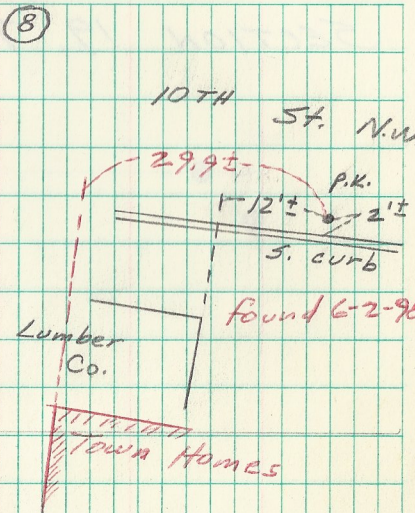 8
10TH St. N.W
29.9±
P.K.
12'±
2'±
S. curb
found 6-2-98
Lumber
Co.
Town Homes